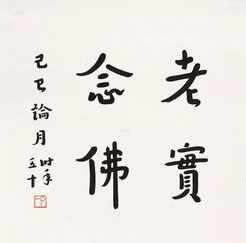 老實
念佛
己卯論月
时年
五十